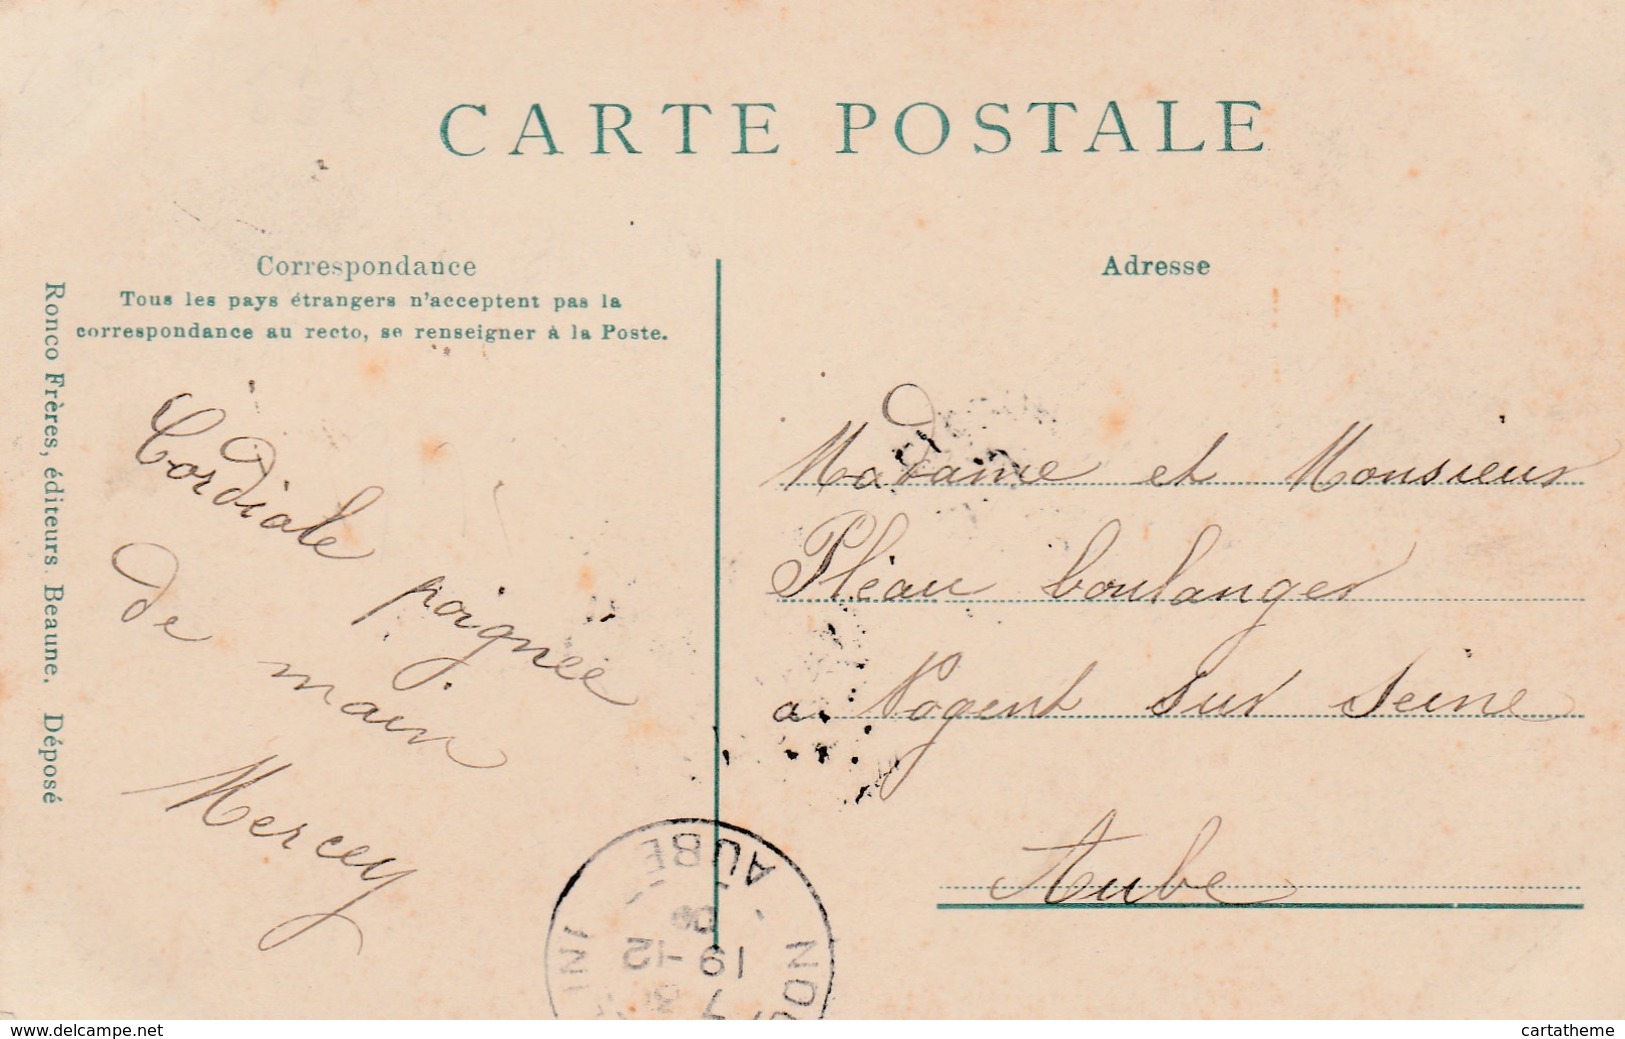 CARTE POSTALE
Correspondance
Tous les pays étrangers n'acceptent pas la
correspondance au recto, se renseigner à la Poste.
Ronco Frères, éditeurs. Beaune. Déposé
Cordiale poignée
de main
Mercey
Adresse
Madame et Monsieur
Pléau boulanger
a Nogent sur Seine
Aube
AUBE
19-12
www.delcampe.net
cartatheme